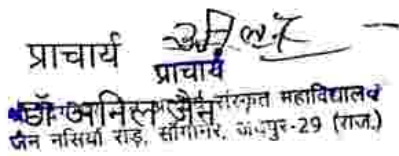 प्राचार्य
प्राचार्य
डॉ अनिल जैन संस्कृत महाविद्यालय
जैन नसियाँ रोड़, सांगानेर, जयपुर-29 (राज.)